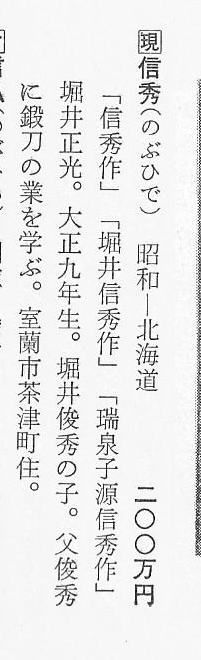 現 信秀（のぶひで） 昭和―北海道 二〇〇万円
「信秀作」「堀井信秀作」「瑞泉子源信秀作」
堀井正光。大正九年生。堀井俊秀の子。父俊秀
に鍛刀の業を学ぶ。室蘭市茶津町住。